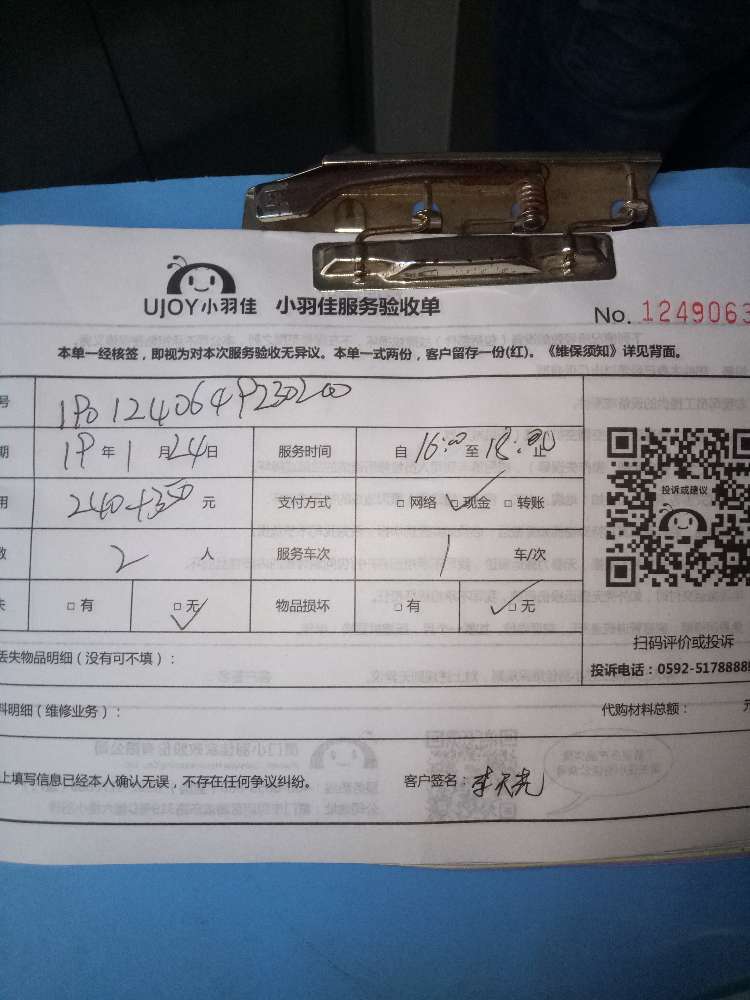 UJOY小羽佳 小羽佳服务验收单
No. 1249063
本单一经核签，即视为对本次服务验收无异议。本单一式两份，客户留存一份(红)。《维保须知》详见背面。
号
期 19 年 1 月 24 日 服务时间 自 16:00 至 18:00 止
用 240+350 元 支付方式 □ 网络 □ 现金 □ 转账
数 2 人 服务车次 1 车/次
失 □ 有 □ 无 物品损坏 □ 有 □ 无
投诉或建议
扫码评价或投诉
投诉电话：0592-5178888
丢失物品明细（没有可不填）：
料明细（维修业务）： 代购材料总额： 元
上填写信息已经本人确认无误，不存在任何争议纠纷。 客户签名：